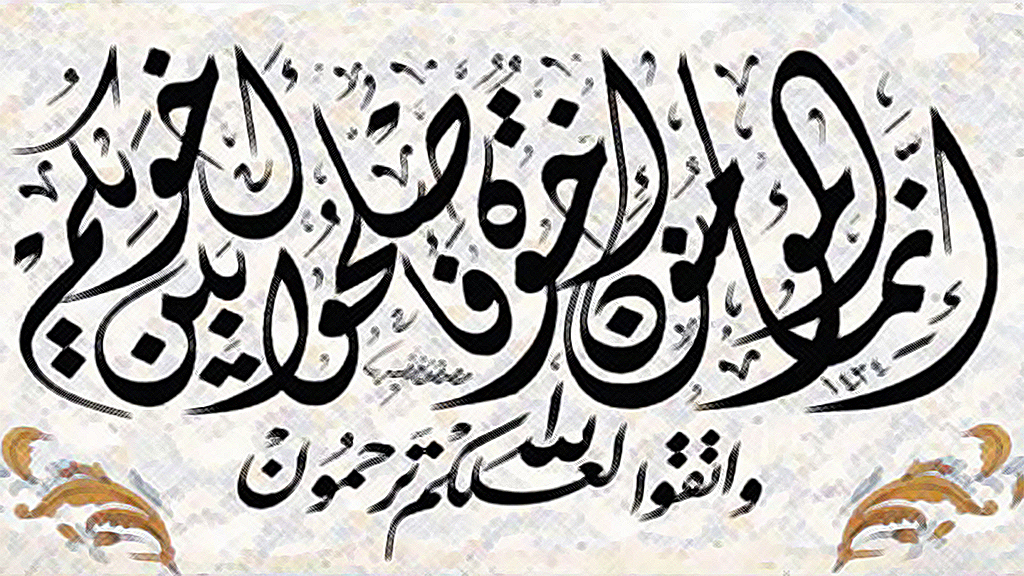 إنما المؤمنون إخوة فأصلحوا بين أخويكم
واتقوا الله لعلكم ترحمون
١٤٣٤